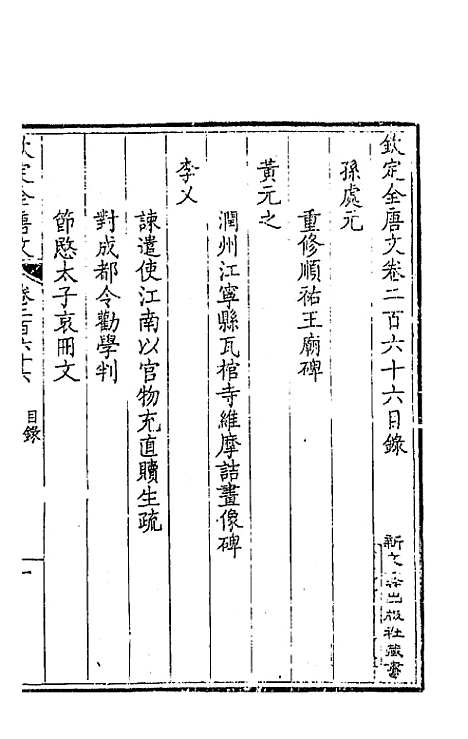 欽定全唐文卷二百六十六目錄
孫處元
重修順祐王廟碑
黃元之
潤州江寧縣瓦棺寺維摩詰畫像碑
李乂
諫遣使江南以官物充直贖生疏
對成都令勸學判
節愍太子哀冊文
欽定全唐文 卷二百六十六 目錄 一
出版社藏書